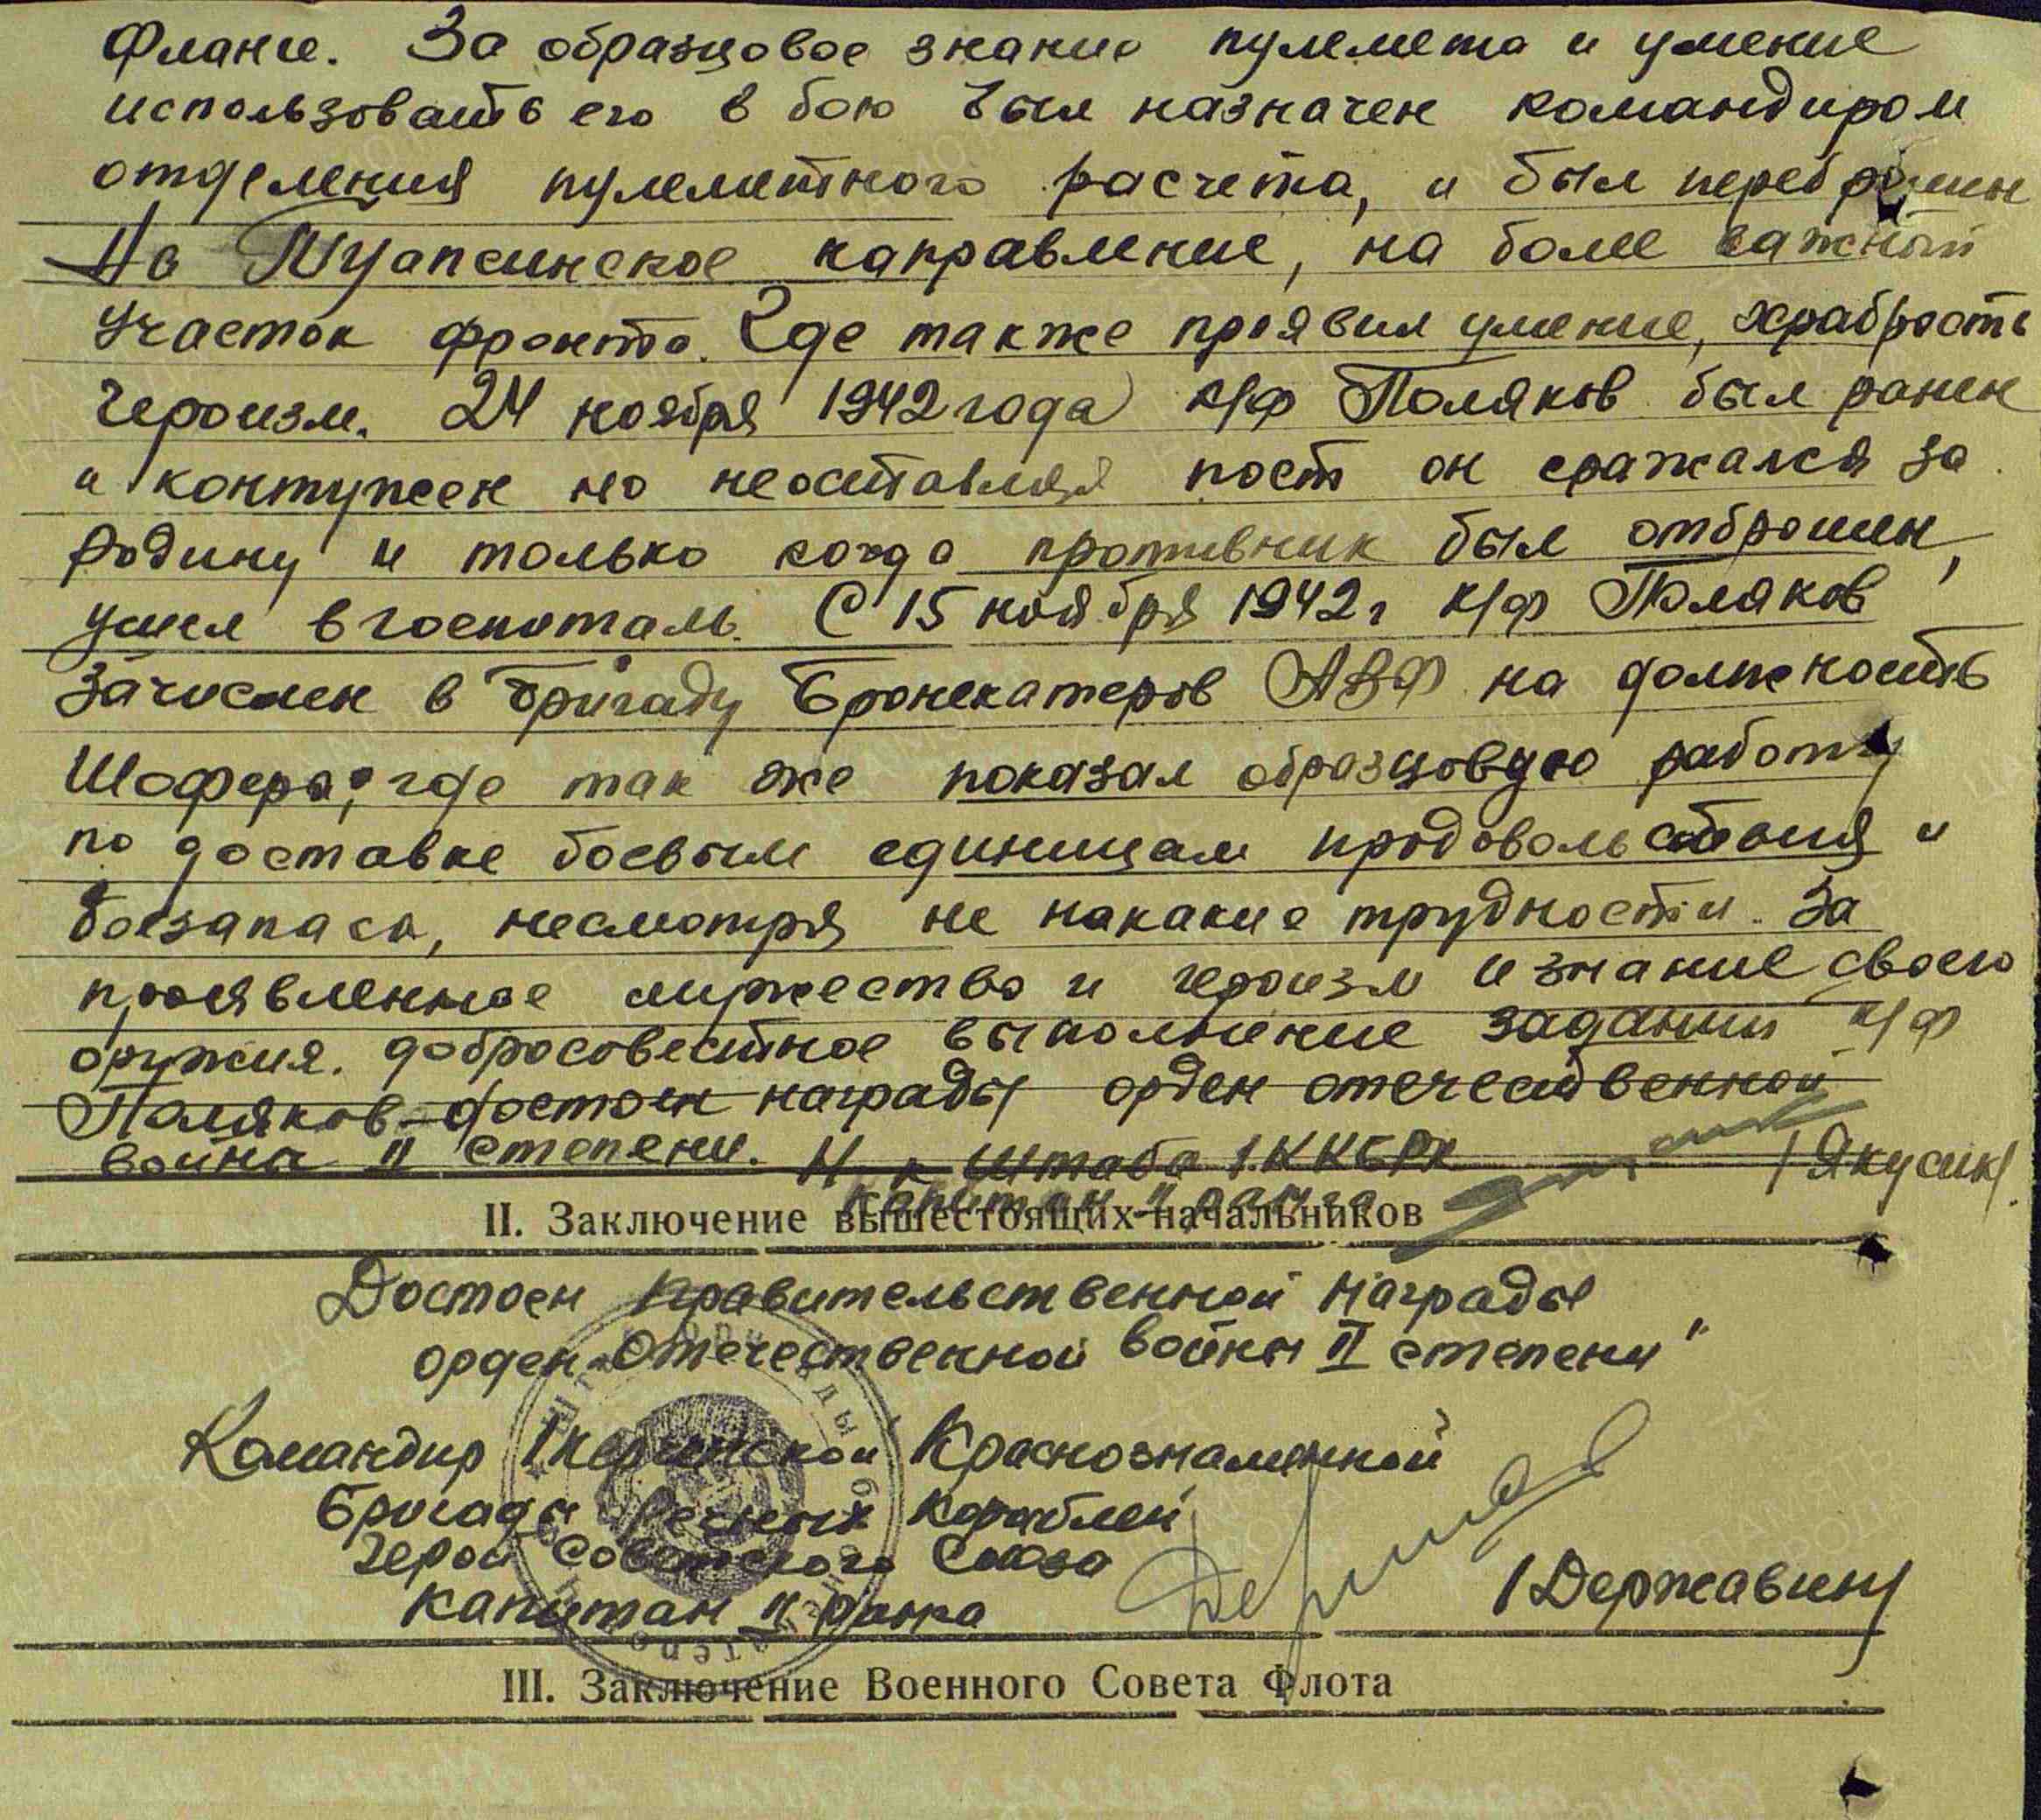 фланге. За образцовое знание пулемета и умение
использовать его в бою был назначен командиром
отделения пулеметного расчета, и был переброшен
На Туапсинское направление, на более важный
участок фронта. Где также проявил умение, храбрость
героизм. 24 ноября 1942 года к/ф Поляков был ранен
и контужен но неоставляя пост он сражался за
родину и только когда противник был отброшен,
ушел в госпиталь. С 15 ноября 1942 г к/ф Поляков
Зачислен в бригаду Бронекатеров АВФ на должность
Шофера, где так же показал образцовую работу
по доставке боевым единицам продовольствия и
боезапаса, несмотря не накакие трудности. За
проявленное мужество и героизм и знание своего
оружия. добросовестное выполнение заданий к/ф
Поляков достоин награды орден отечественной
война II степени. Н-к Штаба 1 ККБРК
капитан II ранга /Якусик/.
II. Заключение вышестоящих начальников
Достоен правительственной награды
орден Отечественной войны II степени"
Командир 1 Керченской Краснознаменной
Бригады Речных кораблей
Герой Советского Союза
капитан II ранга /Державин/
III. Заключение Военного Совета Флота